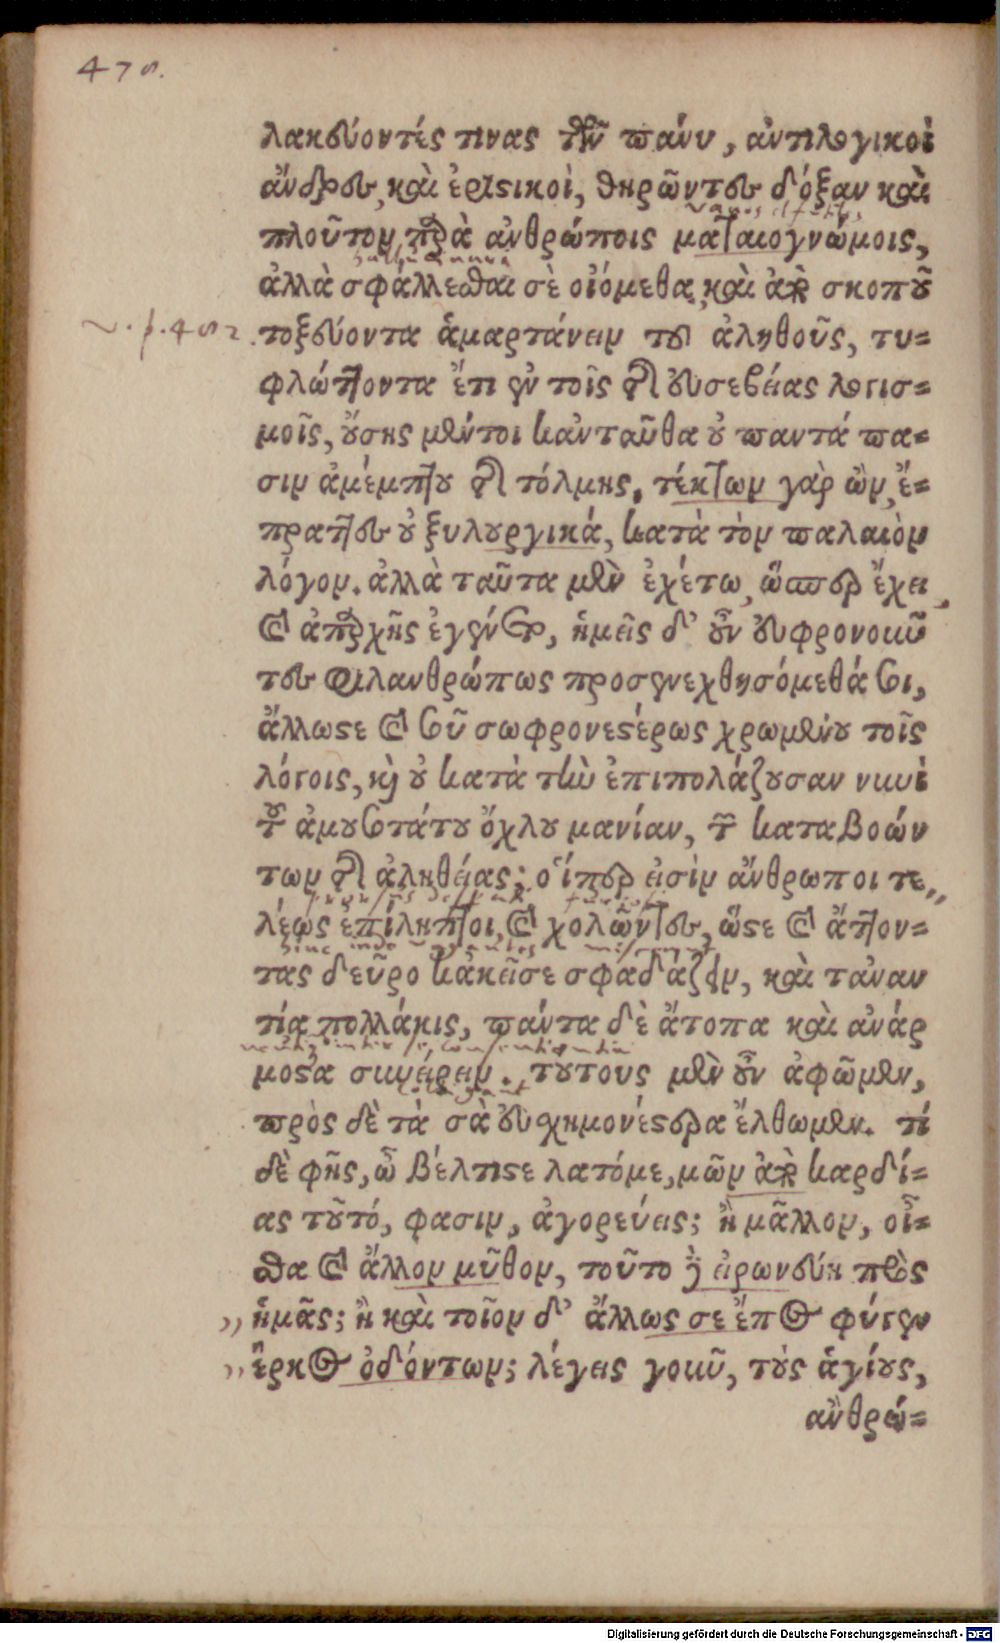 478.
λακεύοντές τινας τῶν πάνυ, ἀντιλογικοὶ
ἄνδρες, καὶ ἐριστικοὶ, θηρῶντες δόξαν καὶ
πλοῦτον, παρὰ ἀνθρώποις ματαιογνώμοις,
ἀλλὰ σφάλλεσθαι σὲ οἰόμεθα, καὶ ἀπὸ σκοποῦ
τοξεύοντα ἁμαρτάνειν τοῦ ἀληθοῦς, τυ=
φλώττοντα ἔτι ἐν τοῖς τῆς εὐσεβείας λογισ=
μοῖς, οὔσης μέντοι κἀνταῦθα οὐ παντάπα=
σιν ἀμέμπτου τῆς τόλμης, τέκτων γὰρ ὢν, ἔ=
πραττες οὐ ξυλουργικά, κατὰ τὸν παλαιὸν
λόγον. ἀλλὰ ταῦτα μὲν ἐχέτω, ὥσπερ ἔχει,
καὶ ἀπαρχῆς ἐγένετο, ἡμεῖς δ' οὖν εὐφρονοῦν
τες φιλανθρώπως προσενεχθησόμεθά σοι,
ἄλλωστε καὶ σοῦ σωφρονεστέρως χρωμένου τοῖς
λόγοις, καὶ οὐ κατὰ τὴν ἐπιπολάζουσαν νυνὶ
τοῦ ἀμουσοτάτου ὄχλου μανίαν, τῶν καταβοών
των τῆς ἀληθείας; οἵπερ εἰσὶν ἄνθρωποι τε,,
λέως ἐπίληπτοι, καὶ χολῶντες, ὥστε καὶ ἄττον=
τας δεῦρο κἀκεῖσε σφαδάζειν, καὶ τἀναν
τία πολλάκις, πάντα δὲ ἄτοπα καὶ ἀνάρ
μοστα συνείρειν. τούτους μὲν οὖν ἀφῶμεν,
πρὸς δὲ τὰ σὰ εὐσχημονέστερα ἔλθωμεν. τί
δὲ φῄς, ὦ βέλτιστε λατόμε, μῶν ἀπὸ καρδί=
ας τοῦτό, φασιν, ἀγορεύεις; ἢ μᾶλλον, οἶ=
σθα καὶ ἄλλον μῦθον, τοῦτο δὴ εἰρωνεύῃ πρὸς
,, ἡμᾶς; ἢ καὶ τοῖον δ' ἄλλως σε ἔπος φύγεν
,, ἕρκος ὀδόντων; λέγεις γοῦν, τοὺς ἁγίους,
ἀνθρώ=
Digitalisierung gefördert durch die Deutsche Forschungsgemeinschaft - DFG